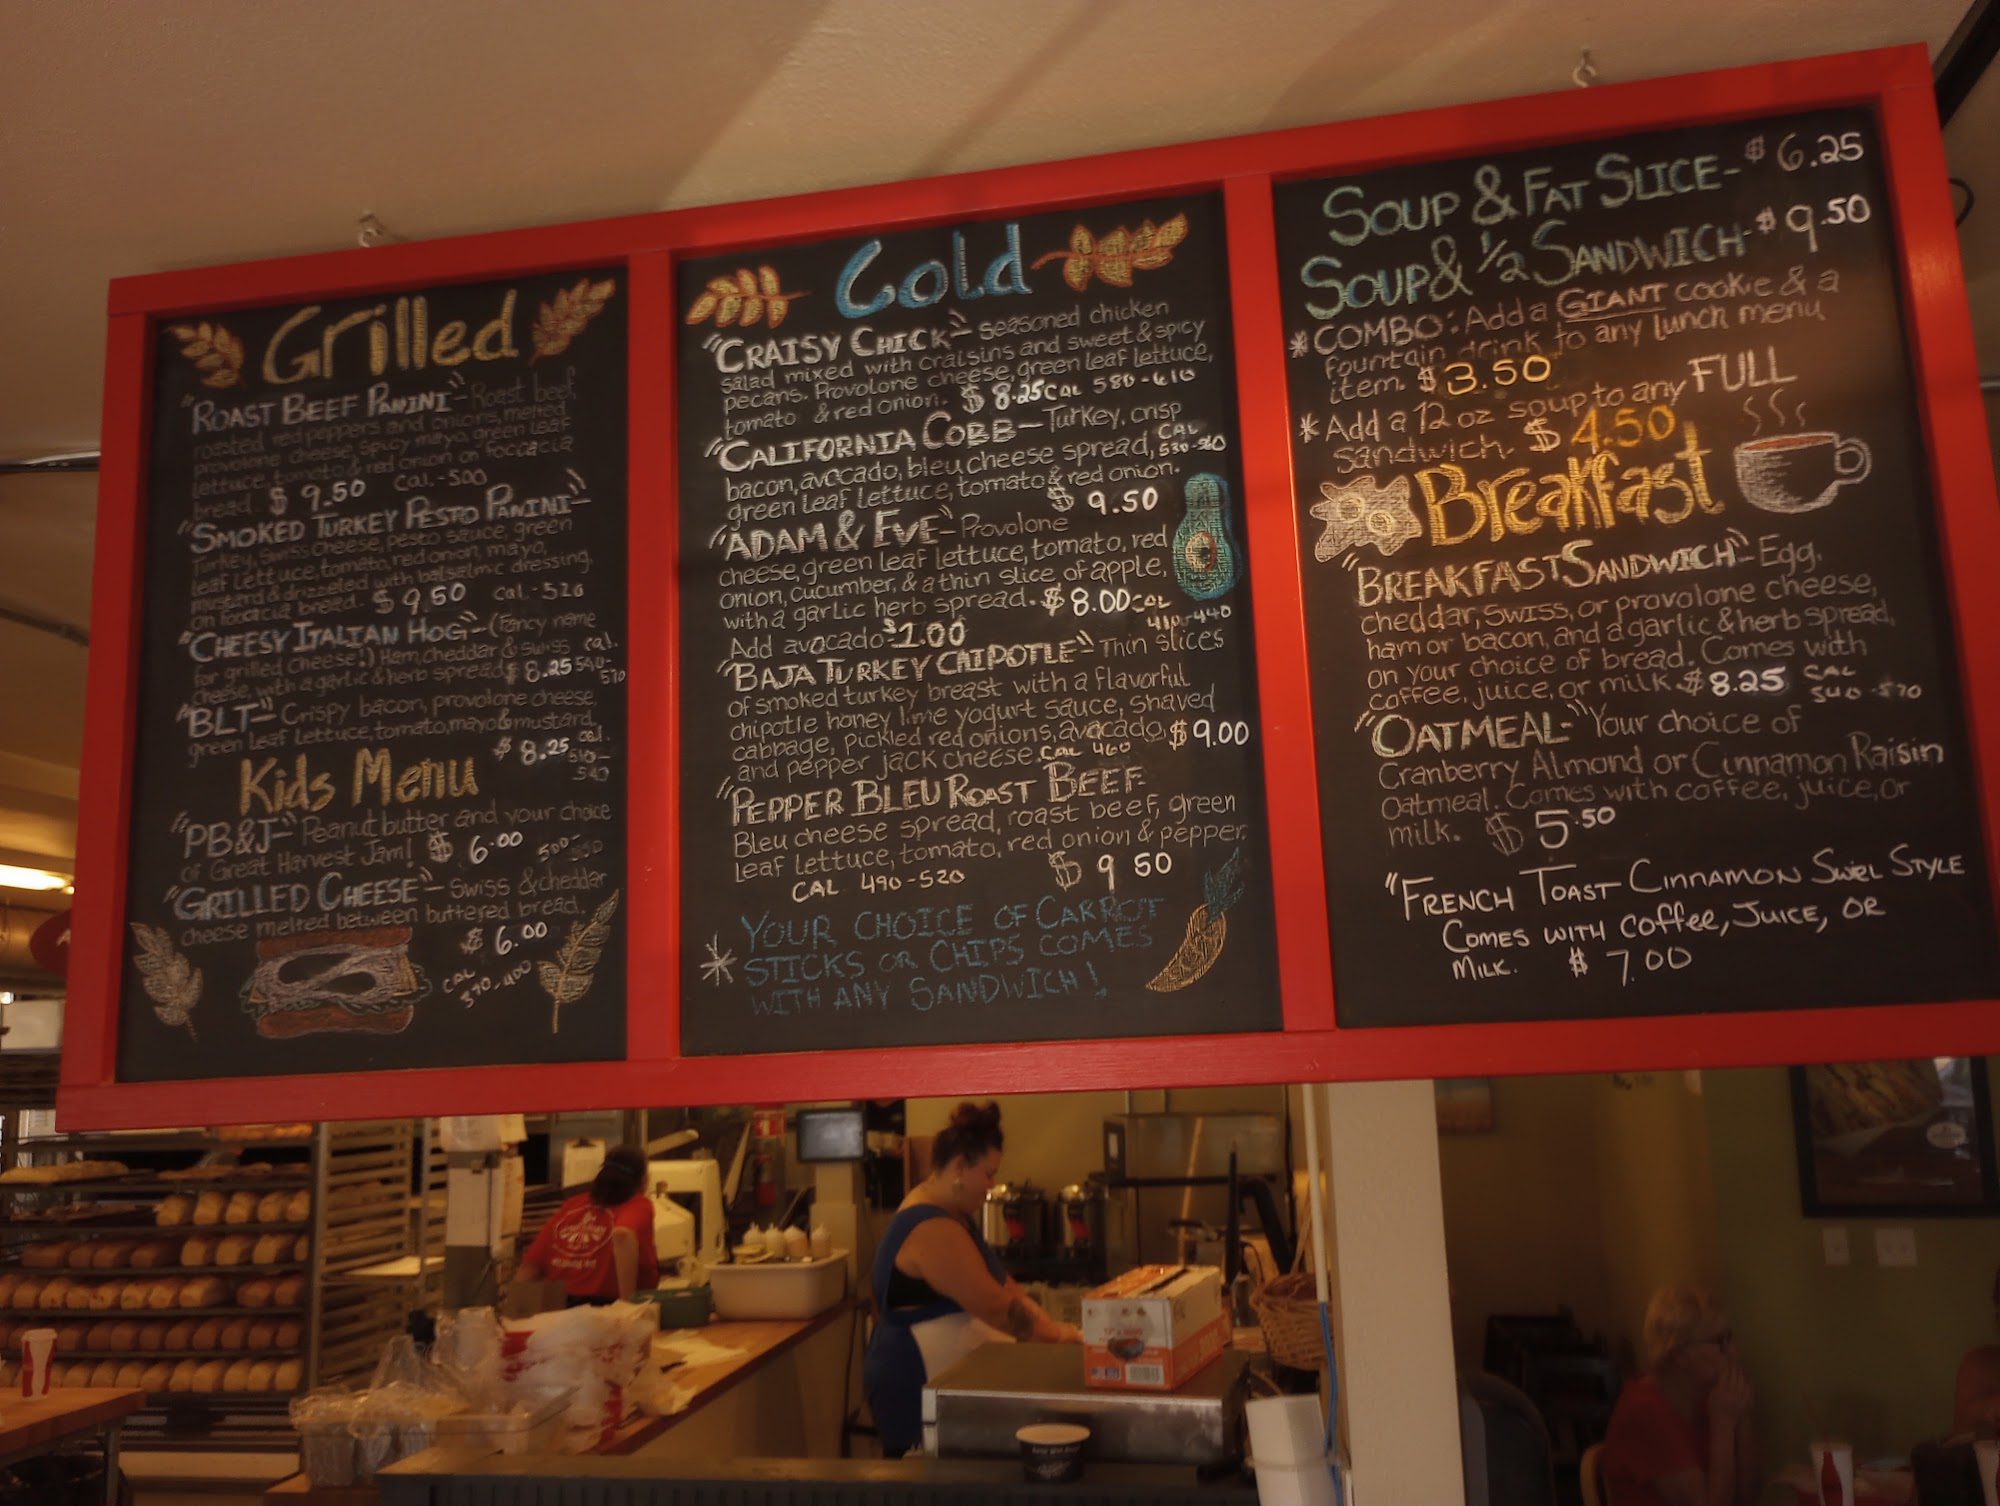 Grilled
"ROAST BEEF PANINI"- Roast beef,
roasted red peppers and onions, melted
provolone cheese, spicy mayo, green leaf
lettuce, tomato & red onion on foccacia
bread. $ 9.50 Cal.-500
"SMOKED TURKEY PESTO PANINI"-
Turkey, Swiss cheese, pesto sauce, green
leaf lettuce, tomato, red onion, mayo,
mustard & drizzeled with balsalmic dressing,
on foccacia bread. $ 9.50 Cal.-520
"CHEESY ITALIAN HOG"-(Fancy name
for grilled cheese!) Ham, cheddar & swiss cal.
cheese, with a garlic & herb spread $ 8.25 540-
570
"BLT"- Crispy bacon, provolone cheese,
green leaf lettuce, tomato, mayo & mustard.
$ 8.25 cal.
510-
540
Kids Menu
"PB&J"- Peanut butter and your choice
of Great Harvest Jam! $ 6.00
"GRILLED CHEESE"- Swiss & cheddar
cheese melted between buttered bread.
$ 6.00
CAL
390-400
Cold
"CRAISY CHICK"- seasoned chicken
salad mixed with craisins and sweet & spicy
pecans. Provolone cheese, green leaf lettuce,
tomato & red onion. $ 8.25 CAL 580-610
"CALIFORNIA COBB- Turkey, crisp
bacon, avocado, bleu cheese spread, CAL
green leaf lettuce, tomato & red onion.
$ 9.50
"ADAM & EVE"- Provolone
cheese, green leaf lettuce, tomato, red
onion, cucumber, & a thin slice of apple,
with a garlic herb spread. $ 8.00 CAL
410-440
Add avocado $1.00
"BAJA TURKEY CHIPOTLE" Thin slices
of smoked turkey breast with a flavorful
chipotle honey lime yogurt sauce, shaved
cabbage, pickled red onions, avacado, $ 9.00
and pepper jack cheese. CAL 460
"PEPPER BLEU ROAST BEEF
Bleu cheese spread, roast beef, green
leaf lettuce, tomato, red onion & pepper.
CAL 490-520 $ 9 50
* YOUR CHOICE OF CARROT
STICKS OR CHIPS COMES
WITH ANY SANDWICH!
SOUP & FAT SLICE- $ 6.25
SOUP & 1/2 SANDWICH- $ 9.50
* COMBO: Add a GIANT cookie & a
fountain drink to any lunch menu
item. $ 3.50
* Add a 12 oz soup to any FULL
sandwich. $ 4.50
Breakfast
"BREAKFAST SANDWICH"- Egg,
cheddar, swiss, or provolone cheese,
ham or bacon, and a garlic & herb spread,
on your choice of bread. Comes with
coffee, juice, or milk. $ 8.25 CAL
540-570
"OATMEAL-" Your choice of
Cranberry Almond or Cinnamon Raisin
Oatmeal. Comes with coffee, juice, or
milk. $ 5.50
"FRENCH TOAST CINNAMON SWEL STYLE
COMES WITH COFFEE, JUICE, OR
MILK. $ 7.00